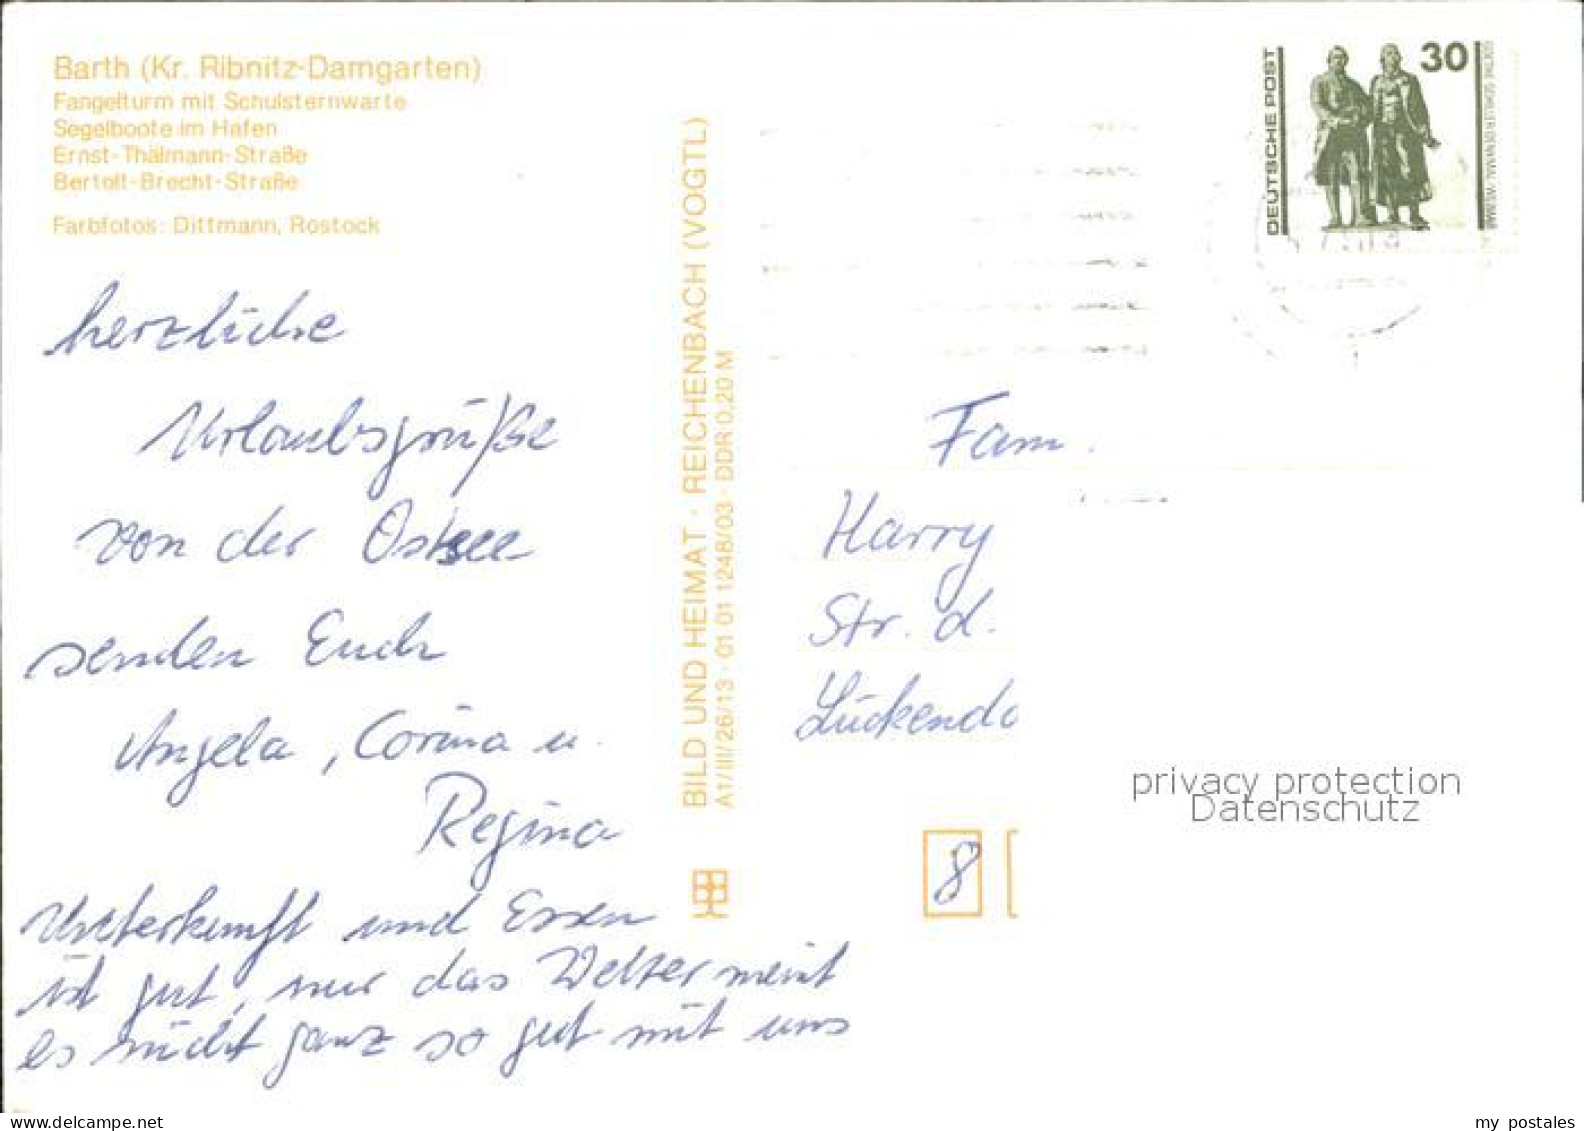 Barth (Kr. Ribnitz-Damgarten)
Fangelturm mit Schulsternwarte
Segelboote im Hafen
Ernst-Thälmann-Straße
Bertolt-Brecht-Straße
Farbfotos: Dittmann, Rostock
herzliche
Urlaubsgrüße
von der Ostsee
senden Euch
Angela, Corina u.
Regina
Unterkunft und Essen
ist gut, nur das Wetter meint
es nicht ganz so gut mit uns
BILD UND HEIMAT · REICHENBACH (VOGTL)
A1/III/26/13 · 01 01 1248/03 · DDR 0,20 M
DEUTSCHE POST
30
GOETHE-SCHILLER-DENKMAL · WEIMAR
Fam.
Harry
Str. d.
Lückendo
8
privacy protection
Datenschutz
118162
my postales